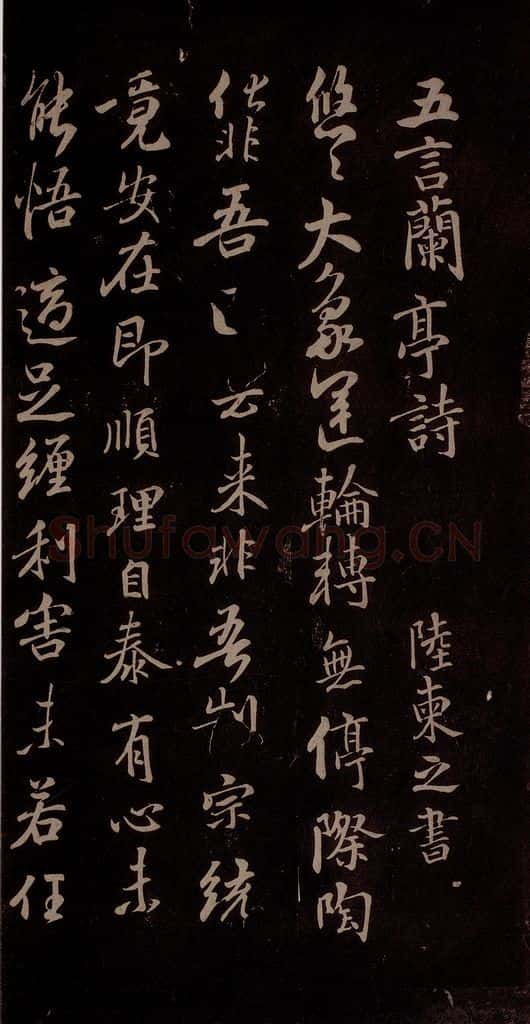 五言蘭亭詩 陸柬之書
悠〻大象運輪轉無停際陶
化非吾 去来非吾制宗統
竟安在即順理自泰有心未
能悟適足纏利害未若任
Shufawang.CN